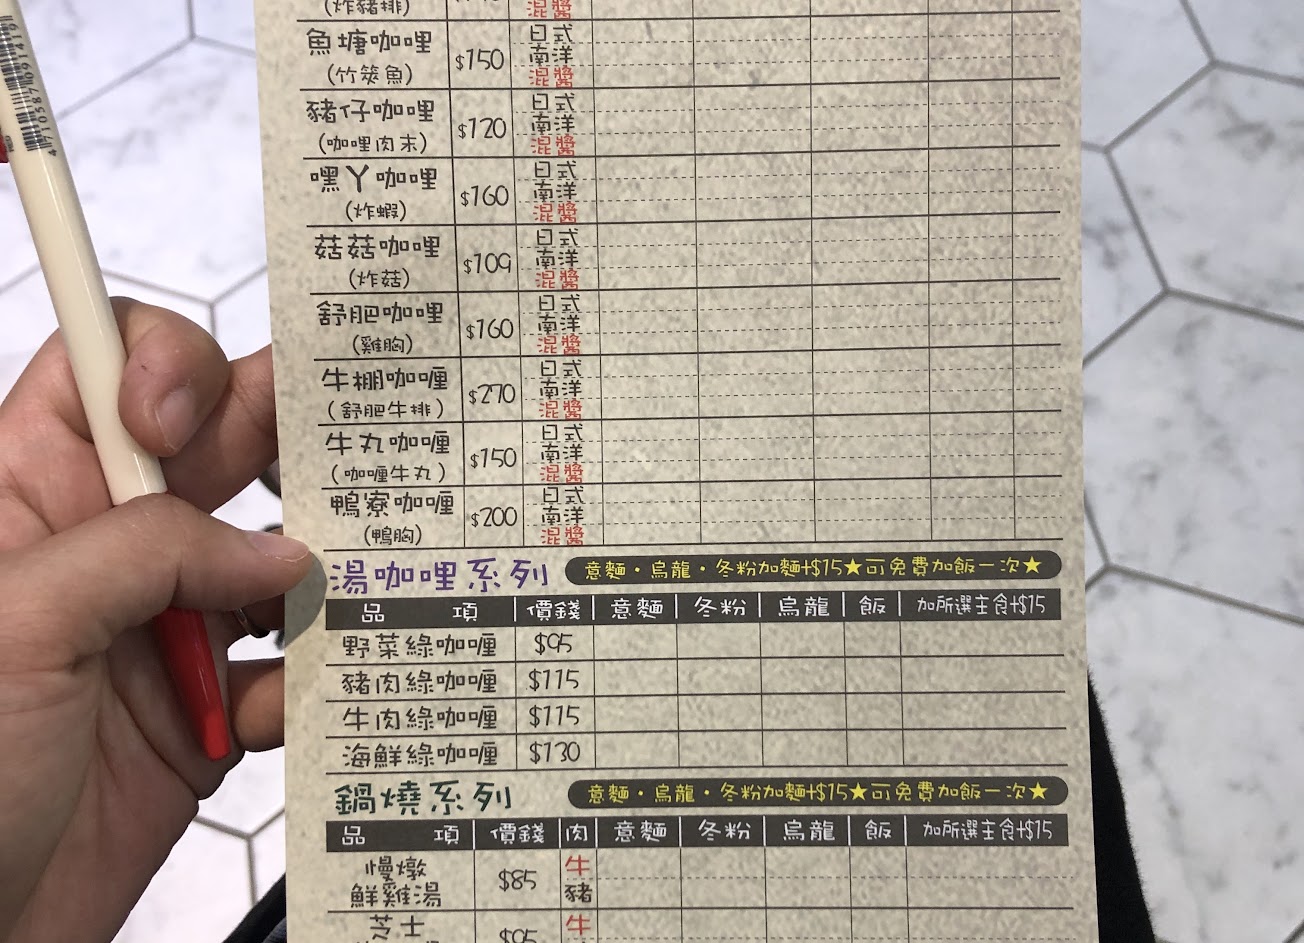 (炸豬排)
混醬
魚塘咖哩
(竹筴魚)
$150
日式
南洋
混醬
豬仔咖哩
(咖哩肉末)
$120
日式
南洋
混醬
嘿丫咖哩
(炸蝦)
$160
日式
南洋
混醬
菇菇咖哩
(炸菇)
$109
日式
南洋
混醬
舒肥咖哩
(雞胸)
$160
日式
南洋
混醬
牛棚咖喱
(舒肥牛排)
$270
日式
南洋
混醬
牛丸咖喱
(咖喱牛丸)
$150
日式
南洋
混醬
鴨寮咖喱
(鴨胸)
$200
日式
南洋
混醬
湯咖哩系列 意麵・烏龍・冬粉加麵+$15★可免費加飯一次★
品項 價錢 意麵 冬粉 烏龍 飯 加所選主食+$15
野菜綠咖喱 $95
豬肉綠咖喱 $115
牛肉綠咖喱 $115
海鮮綠咖喱 $130
鍋燒系列 意麵・烏龍・冬粉加麵+$15★可免費加飯一次★
品項 價錢 肉 意麵 冬粉 烏龍 飯 加所選主食+$15
慢燉
鮮雞湯
$85
牛
豬
芝士
$95
牛